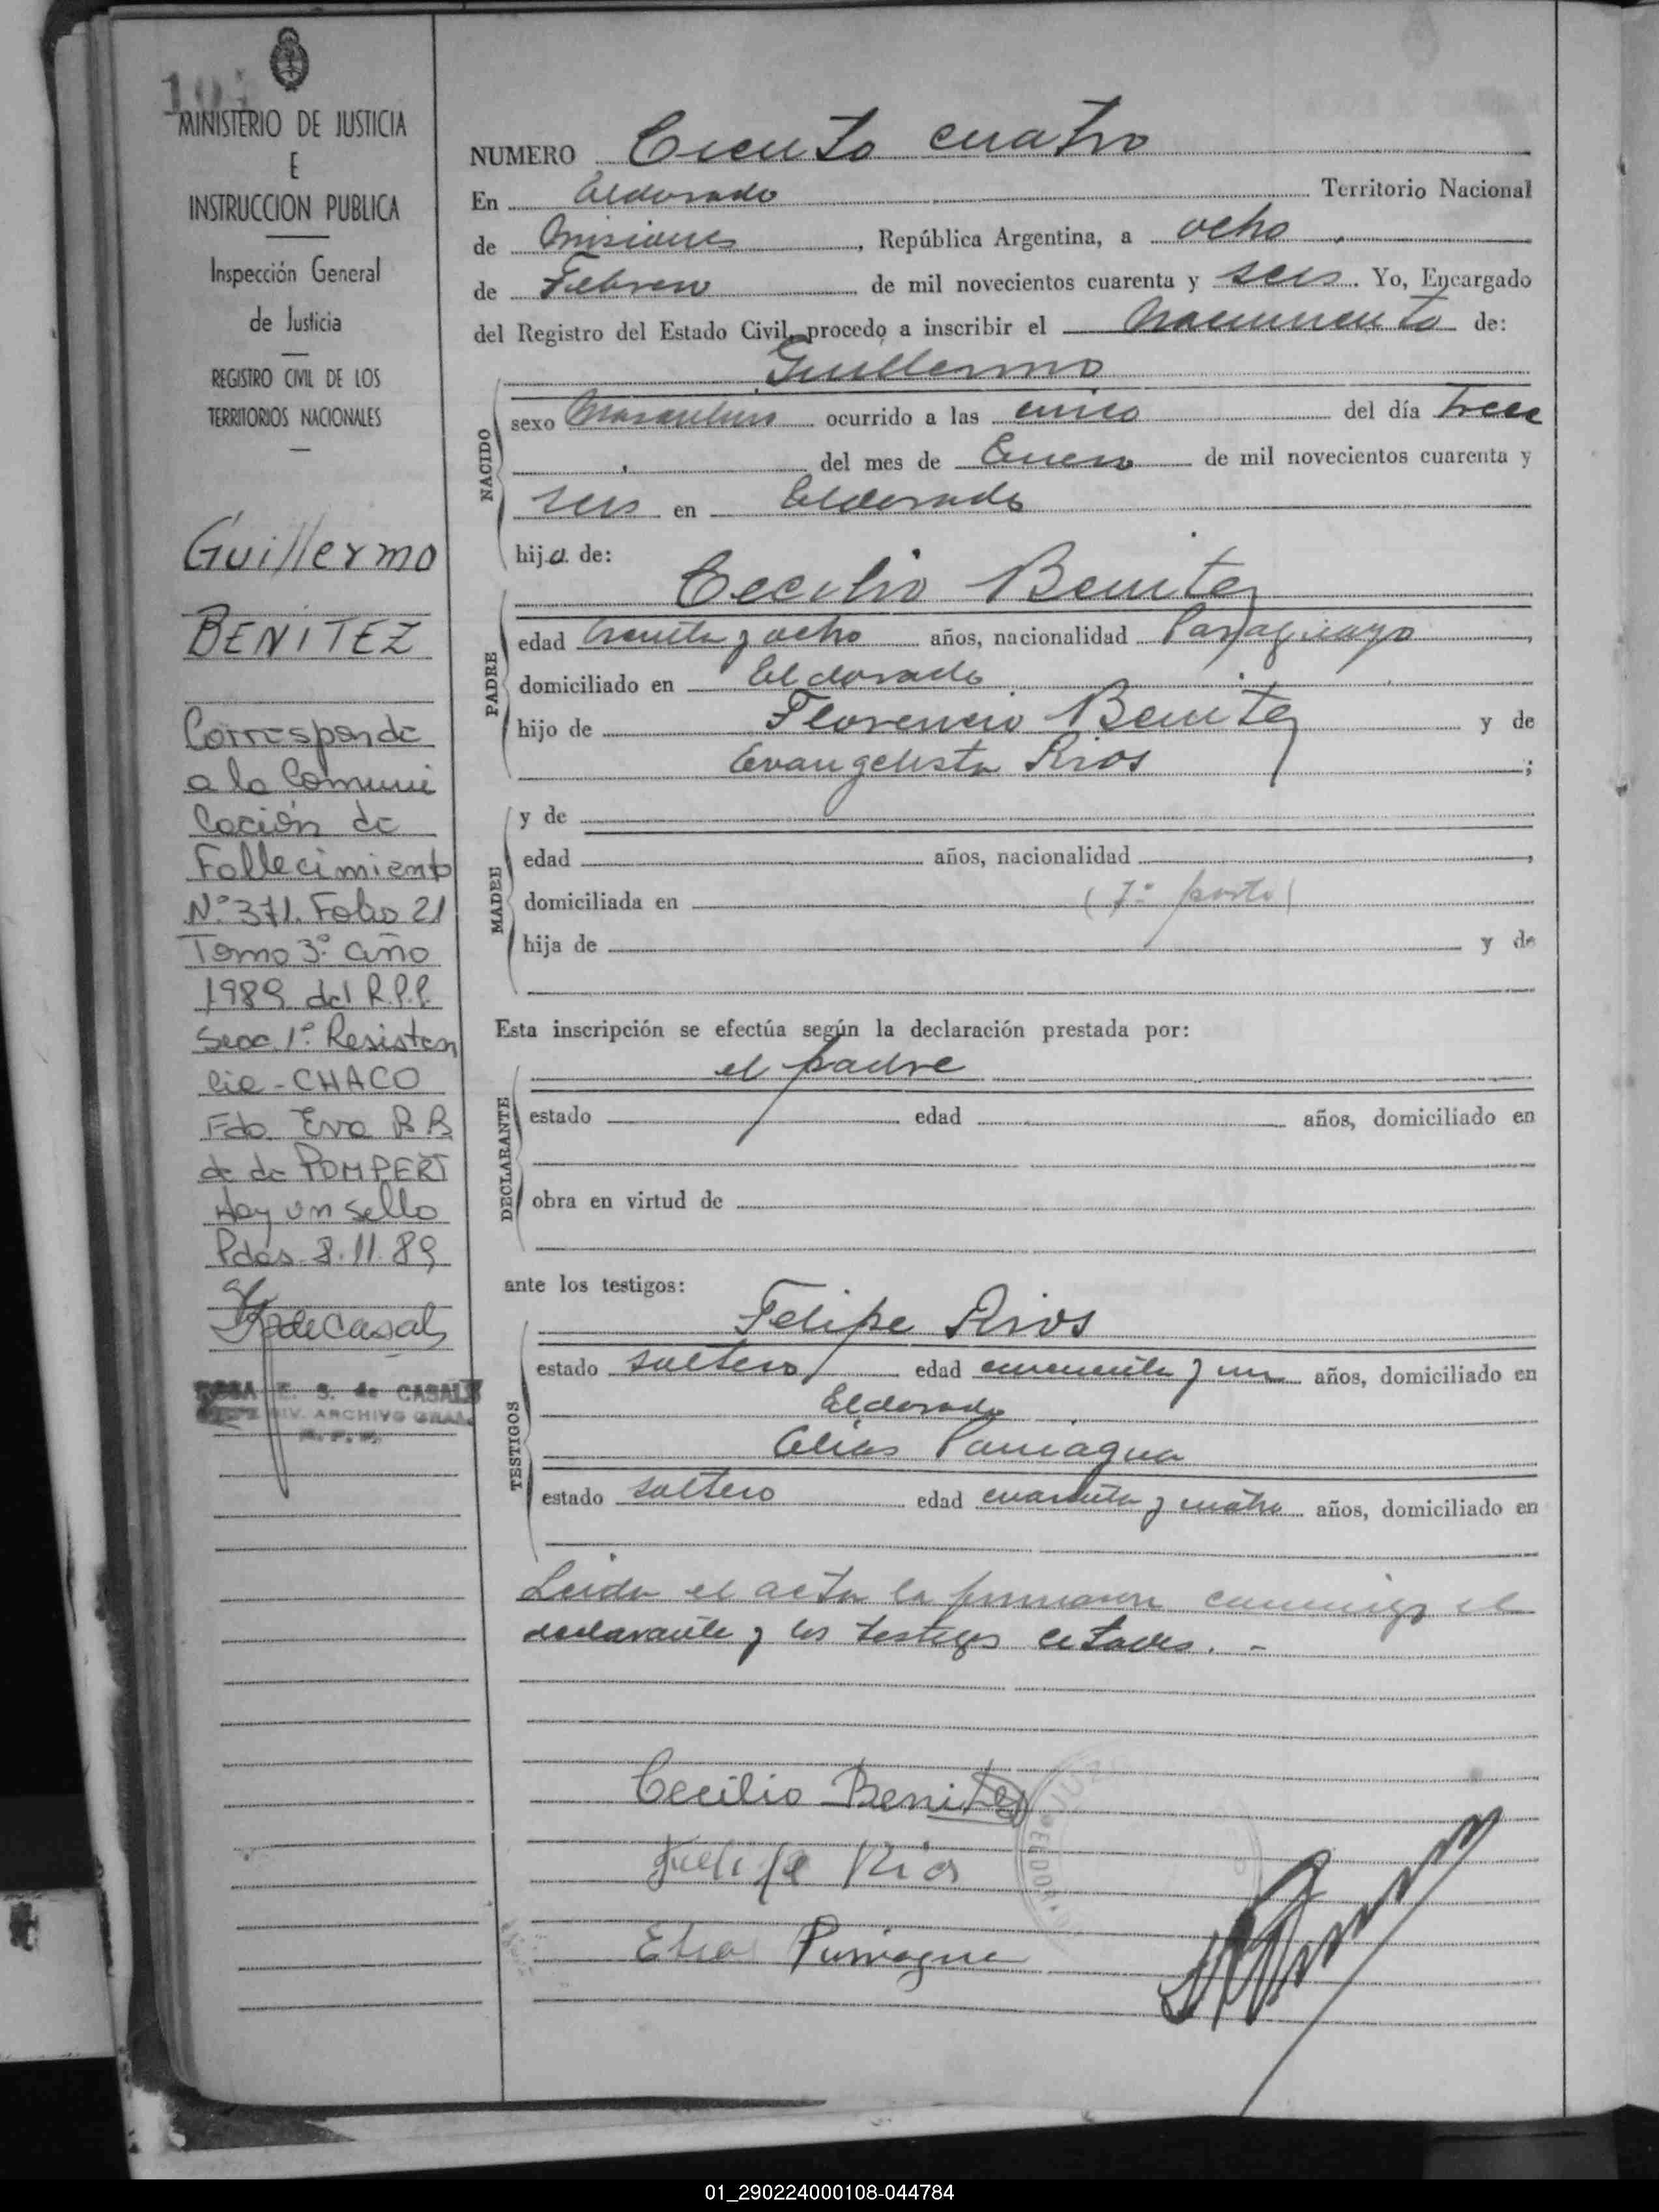 104
MINISTERIO DE JUSTICIA
E
INSTRUCCION PUBLICA
Inspección General
de Justicia
REGISTRO CIVIL DE LOS
TERRITORIOS NACIONALES
Guillermo
BENITEZ
Corresponde
a la Comuni
cación de
Fallecimiento
Nº 371. Folio 21
Tomo 3º año
1989 del R.P.P.
Secc. 1º Resisten
cia - CHACO
Fdo. Eva B.B.
de POMPERT
Hay un sello
Pdas. 8.11.89
RdeCasals
ROSA E. S. de CASALS
DIV. ARCHIVO GRAL.
NUMERO Ciento cuatro
En Eldorado Territorio Nacional
de Misiones, República Argentina, a ocho
de Febrero de mil novecientos cuarenta y seis. Yo, Encargado
del Registro del Estado Civil, procedo a inscribir el Nacimiento de:
Guillermo
NACIDO
sexo Masculino ocurrido a las cinco del día trece
del mes de Enero de mil novecientos cuarenta y
seis en Eldorado
hijo de:
Cecilio Benitez
PADRE
edad treinta y ocho años, nacionalidad Paraguayo,
domiciliado en Eldorado
hijo de Florencio Benitez y de
Evangelista Rios;
MADRE
y de
edad años, nacionalidad,
domiciliada en (7º parto)
hija de y de
Esta inscripción se efectúa según la declaración prestada por:
el padre
DECLARANTE
estado edad años, domiciliado en
obra en virtud de
ante los testigos:
Felipe Rios
TESTIGOS
estado soltero edad cincuenta y un años, domiciliado en
Eldorado
Elias Paniagua
estado soltero edad cuarenta y cuatro años, domiciliado en
Leida el acta la firmaron conmigo el
declarante y los testigos citados. -
Cecilio Benitez
Juelife Rios
Elias Paniagua
01_290224000108-044784